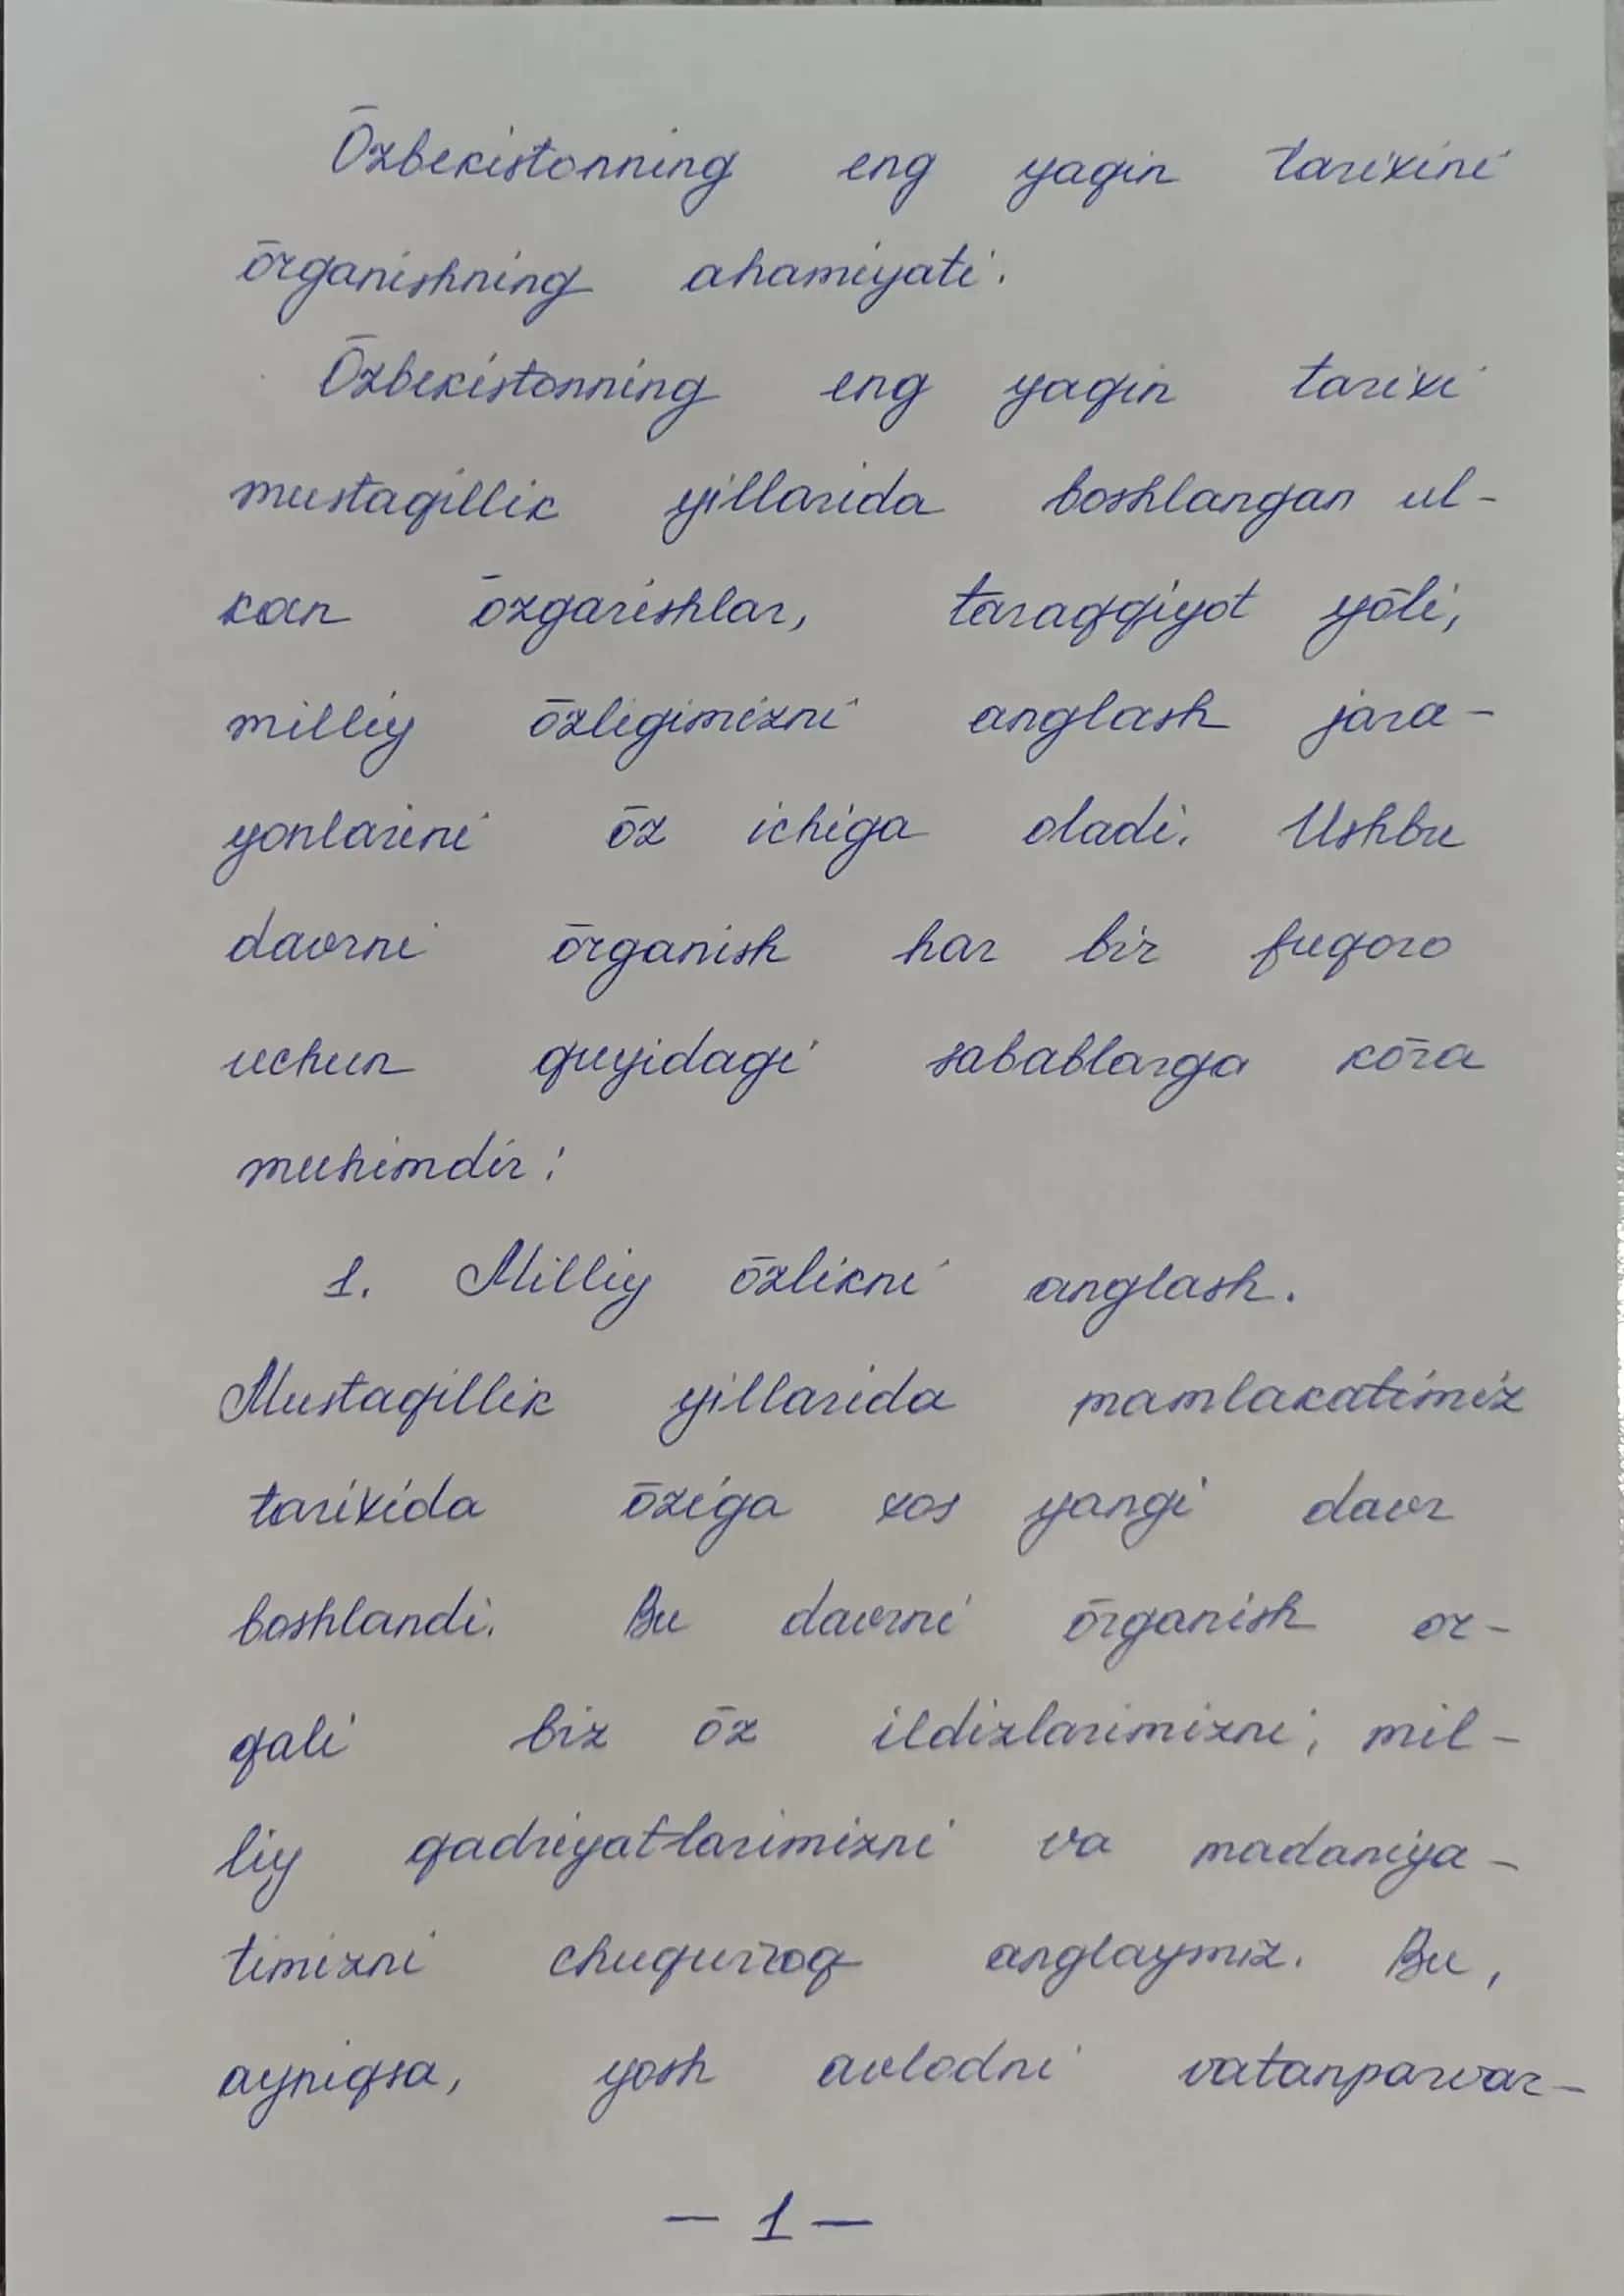 Ōzbekistonning eng yaqin tarixini
ōrganishning ahamiyati.
Ōzbekistonning eng yaqin tarixi
mustaqillik yillarida boshlangan ul-
kan ōzgarishlar, taraqqiyot yōli,
milliy ōzligimizni anglash jara-
yonlarini ōz ichiga oladi. Ushbu
davrni ōrganish har bir fuqoro
uchun quyidagi sabablarga kōra
muhimdir:
1. Milliy ōzlikni anglash.
Mustaqillik yillarida mamlakatimiz
tarixida ōziga xos yangi davr
boshlandi. Bu davrni ōrganish or-
qali biz ōz ildizlarimizni, mil-
liy qadriyatlarimizni va madaniya-
timizni chuqurroq anglaymiz. Bu,
ayniqsa, yosh avlodni vatanparvar-
— 1 —